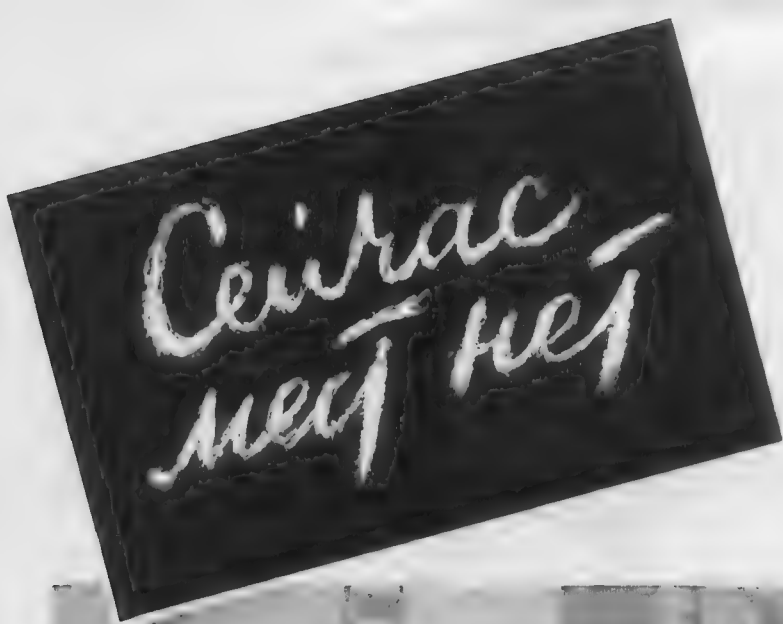 Сейчас
мест нет